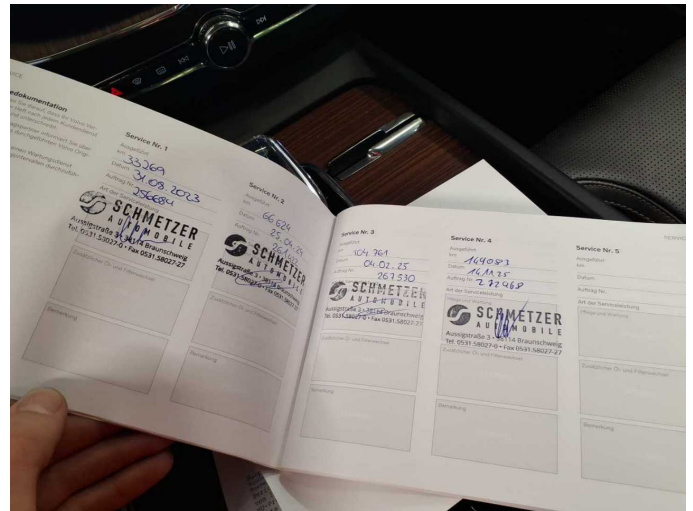 Service Nr. 1
Ausgeführt
km
33269
Datum 31.08.2023
Auftrag Nr. 256684
Art der Serviceleistung
SCHMETZER
AUTOMOBILE
Aussigstraße 3 • 38114 Braunschweig
Tel. 0531.58027-0 • Fax 0531.58027-27
Zusätzlicher Öl- und Filterwechsel
Bemerkung
Service Nr. 2
Ausgeführt
km
66624
Datum 25.04.24
Auftrag Nr.
SCHMETZER
AUTOMOBILE
Aussigstraße 3 • 38114 Braunschweig
Tel. 0531.58027-0 • Fax 0531.58027-27
Zusätzlicher Öl- und Filterwechsel
Bemerkung
Service Nr. 3
Ausgeführt
km 104761
Datum 04.02.25
Auftrag Nr. 267530
SCHMETZER
AUTOMOBILE
Aussigstraße 3 • 38114 Braunschweig
Tel. 0531.58027-0 • Fax 0531.58027-27
Zusätzlicher Öl- und Filterwechsel
Bemerkung
Service Nr. 4
Ausgeführt
km 149083
Datum 14.11.25
Auftrag Nr. 272468
Art der Serviceleistung
Pflege und Wartung
SCHMETZER
AUTOMOBILE
Aussigstraße 3 • 38114 Braunschweig
Tel. 0531.58027-0 • Fax 0531.58027-27
Zusätzlicher Öl- und Filterwechsel
Bemerkung
Service Nr. 5
Ausgeführt
km
Datum
Auftrag Nr.
Art der Serviceleistung
Pflege und Wartung
Zusätzlicher Öl- und Filterwechsel
Bemerkung